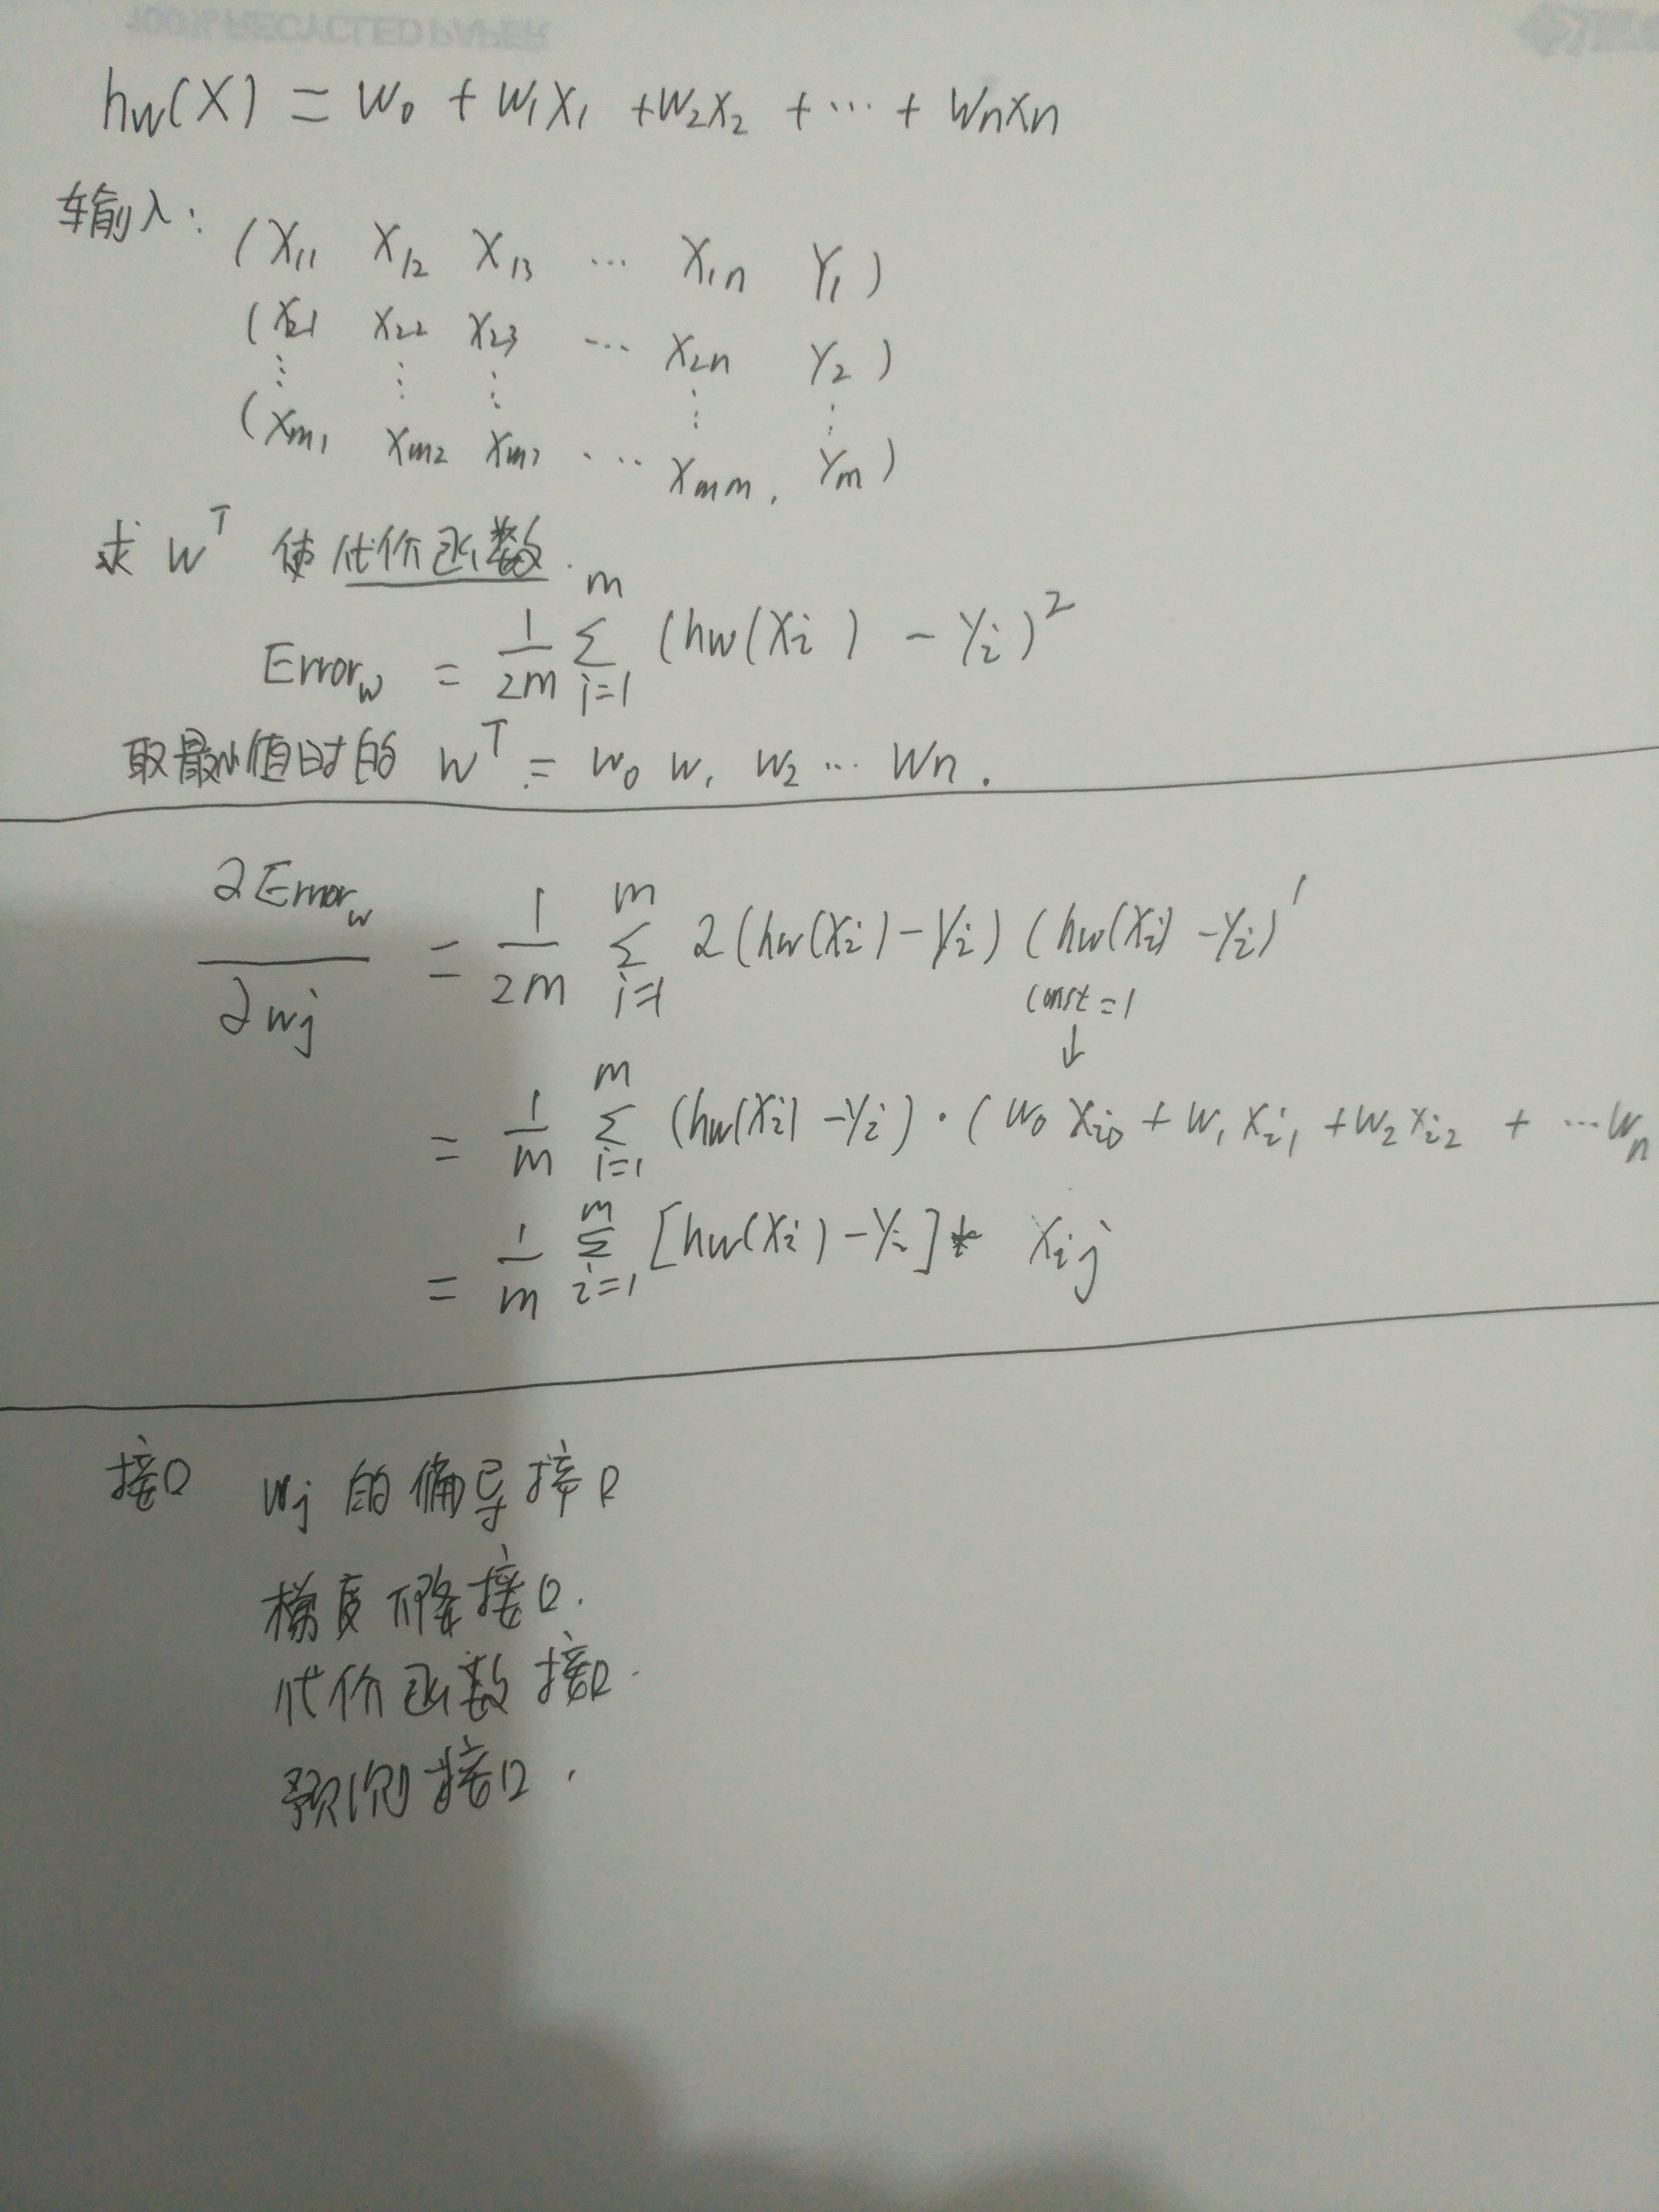 100% RECYCLED PAPER
hw(X) = w₀ + w₁x₁ + w₂x₂ + ⋯ + wₙxₙ
输入:
(X₁₁ X₁₂ X₁₃ ⋯ X₁ₙ Y₁)
(X₂₁ X₂₂ X₂₃ ⋯ X₂ₙ Y₂)
⋮ ⋮ ⋮ ⋮ ⋮
(Xm₁ Xm₂ Xm₃ ⋯ Xmm, Ym)
求 wᵀ 使代价函数.
Error_w = 1/2m Σ_{i=1}^{m} (hw(Xi) - Yi)²
取最小值时的 wᵀ = w₀ w₁ w₂ ⋯ wn.
∂Error_w/∂wj = 1/2m Σ_{i=1}^{m} 2(hw(Xi) - Yi) (hw(Xi) - Yi)′
const = 1
↓
= 1/m Σ_{i=1}^{m} (hw(Xi) - Yi) · (w₀ Xi₀ + w₁ Xi₁ + w₂ Xi₂ + ⋯ wn
= 1/m Σ_{i=1}^{m} [hw(Xi) - Yi] * Xij
接口 wj 的偏导接口
梯度下降接口.
代价函数接口.
预测接口.